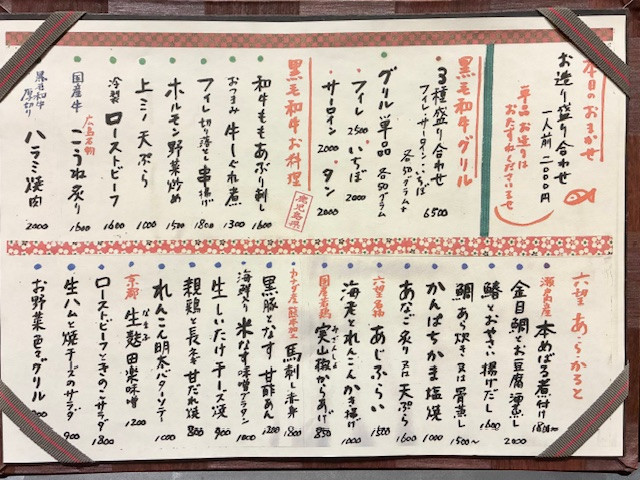 本日のおまかせ
お造り盛り合わせ
一人前 二〇〇〇円
単品お造りは
おたずねくださいませ
黒毛和牛グリル
3種盛り合わせ
フィレ・サーロイン・いちぼ
各50グラム
6500
グリル単品 各50グラム
フィレ 2500 いちぼ 2000
サーロイン 2000 タン 2000
黒毛和牛お料理
鹿児島県
和牛ももあぶり刺し 1600
おつまみ牛しぐれ煮 1300
フィレ切り落とし串揚げ 1800
ホルモン野菜炒め 1500
上ミノ天ぷら 1000
冷製ローストビーフ 1600
国産牛 広島名物 こうね炙り 1600
黒毛和牛 厚切り ハラミ焼肉 2000
六望あらかると
瀬戸内産 本めばる煮付け 1800〜
金目鯛とお豆腐酒蒸し 2000
鰆とおやさい揚げだし 1600
鯛あら炊き又は骨蒸し 1500〜
かんぱちかま塩焼 1000
あなご炙り又は天ぷら 1600
六望名物 あじふらい 1500
海老とれんこんかき揚げ 1000
国産若鶏 実山椒からあげ 850
カナダ産熊本加工 馬刺し赤身 1800
黒豚となす 甘酢あん 1200
海鮮入り米なす味噌グラタン 1000
生しいたけチーズ焼 900
親鶏と長ネギ甘だれ焼 800
れんこん明太バターソテー 1000
京都 生麩田楽味噌 1200
なまふ
ローストビーフときのこサラダ 1800
生ハムと焼チーズのサラダ 900
お野菜色々グリル